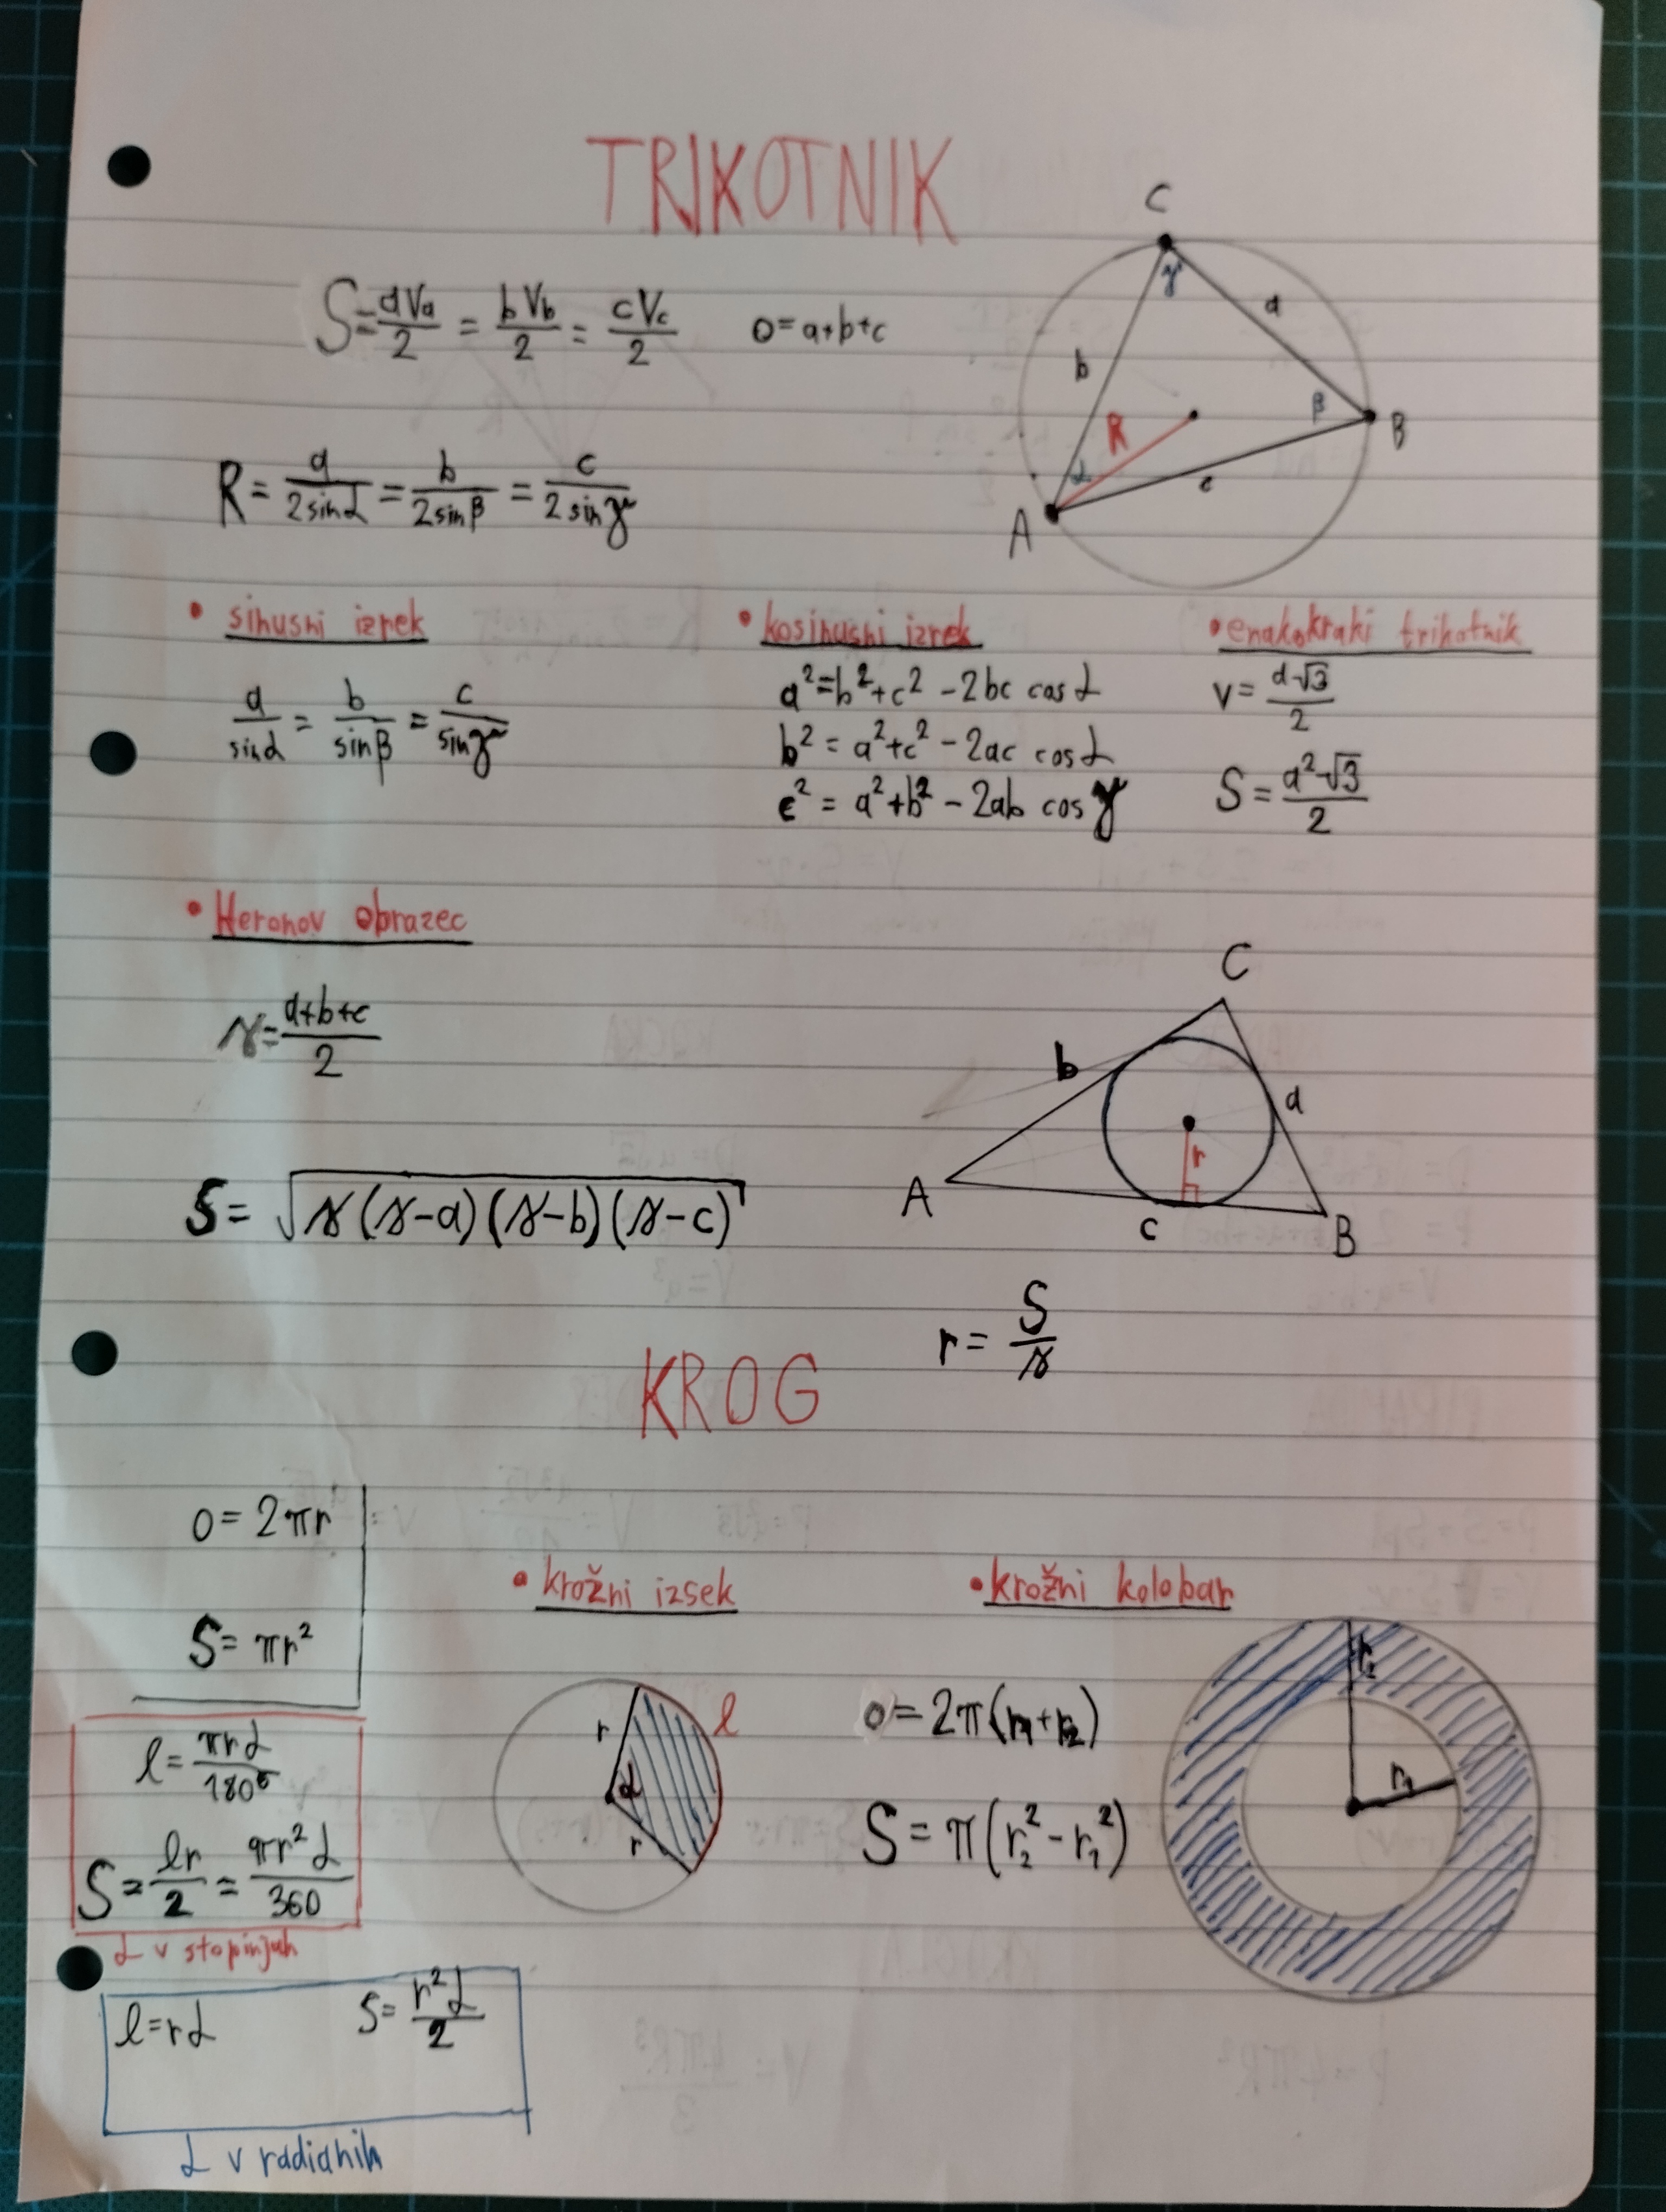 TRIKOTNIK
C
S = aVa/2 = bVb/2 = cVc/2
o = a+b+c
γ
a
b
β
B
R
α
c
A
R = a/2sinα = b/2sinβ = c/2sinγ
• sinusni izrek
a/sinα = b/sinβ = c/sinγ
• kosinusni izrek
a² = b² + c² - 2bc cosα
b² = a² + c² - 2ac cosα
c² = a² + b² - 2ab cosγ
• enakokraki trikotnik
v = a√3/2
S = a²√3/2
• Heronov obrazec
s = a+b+c/2
S = √s(s-a)(s-b)(s-c)
C
b
a
r
A
c
B
r = S/s
KROG
o = 2πr
S = πr²
l = πrα/180°
S = lr/2 = πr²α/360
α v stopinjah
l = rα
S = r²α/2
α v radianih
• krožni izsek
r
l
α
r
• krožni kolobar
o = 2π(r₁+r₂)
S = π(r₂² - r₁²)
r₂
r₁